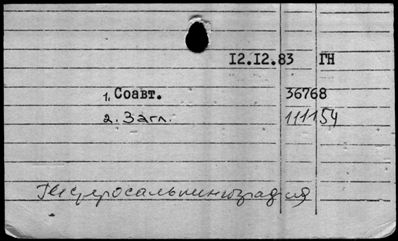 12.12.83 ГН
1. Соавт. 36768
2. Загл. 111154
Гистеросальпингография